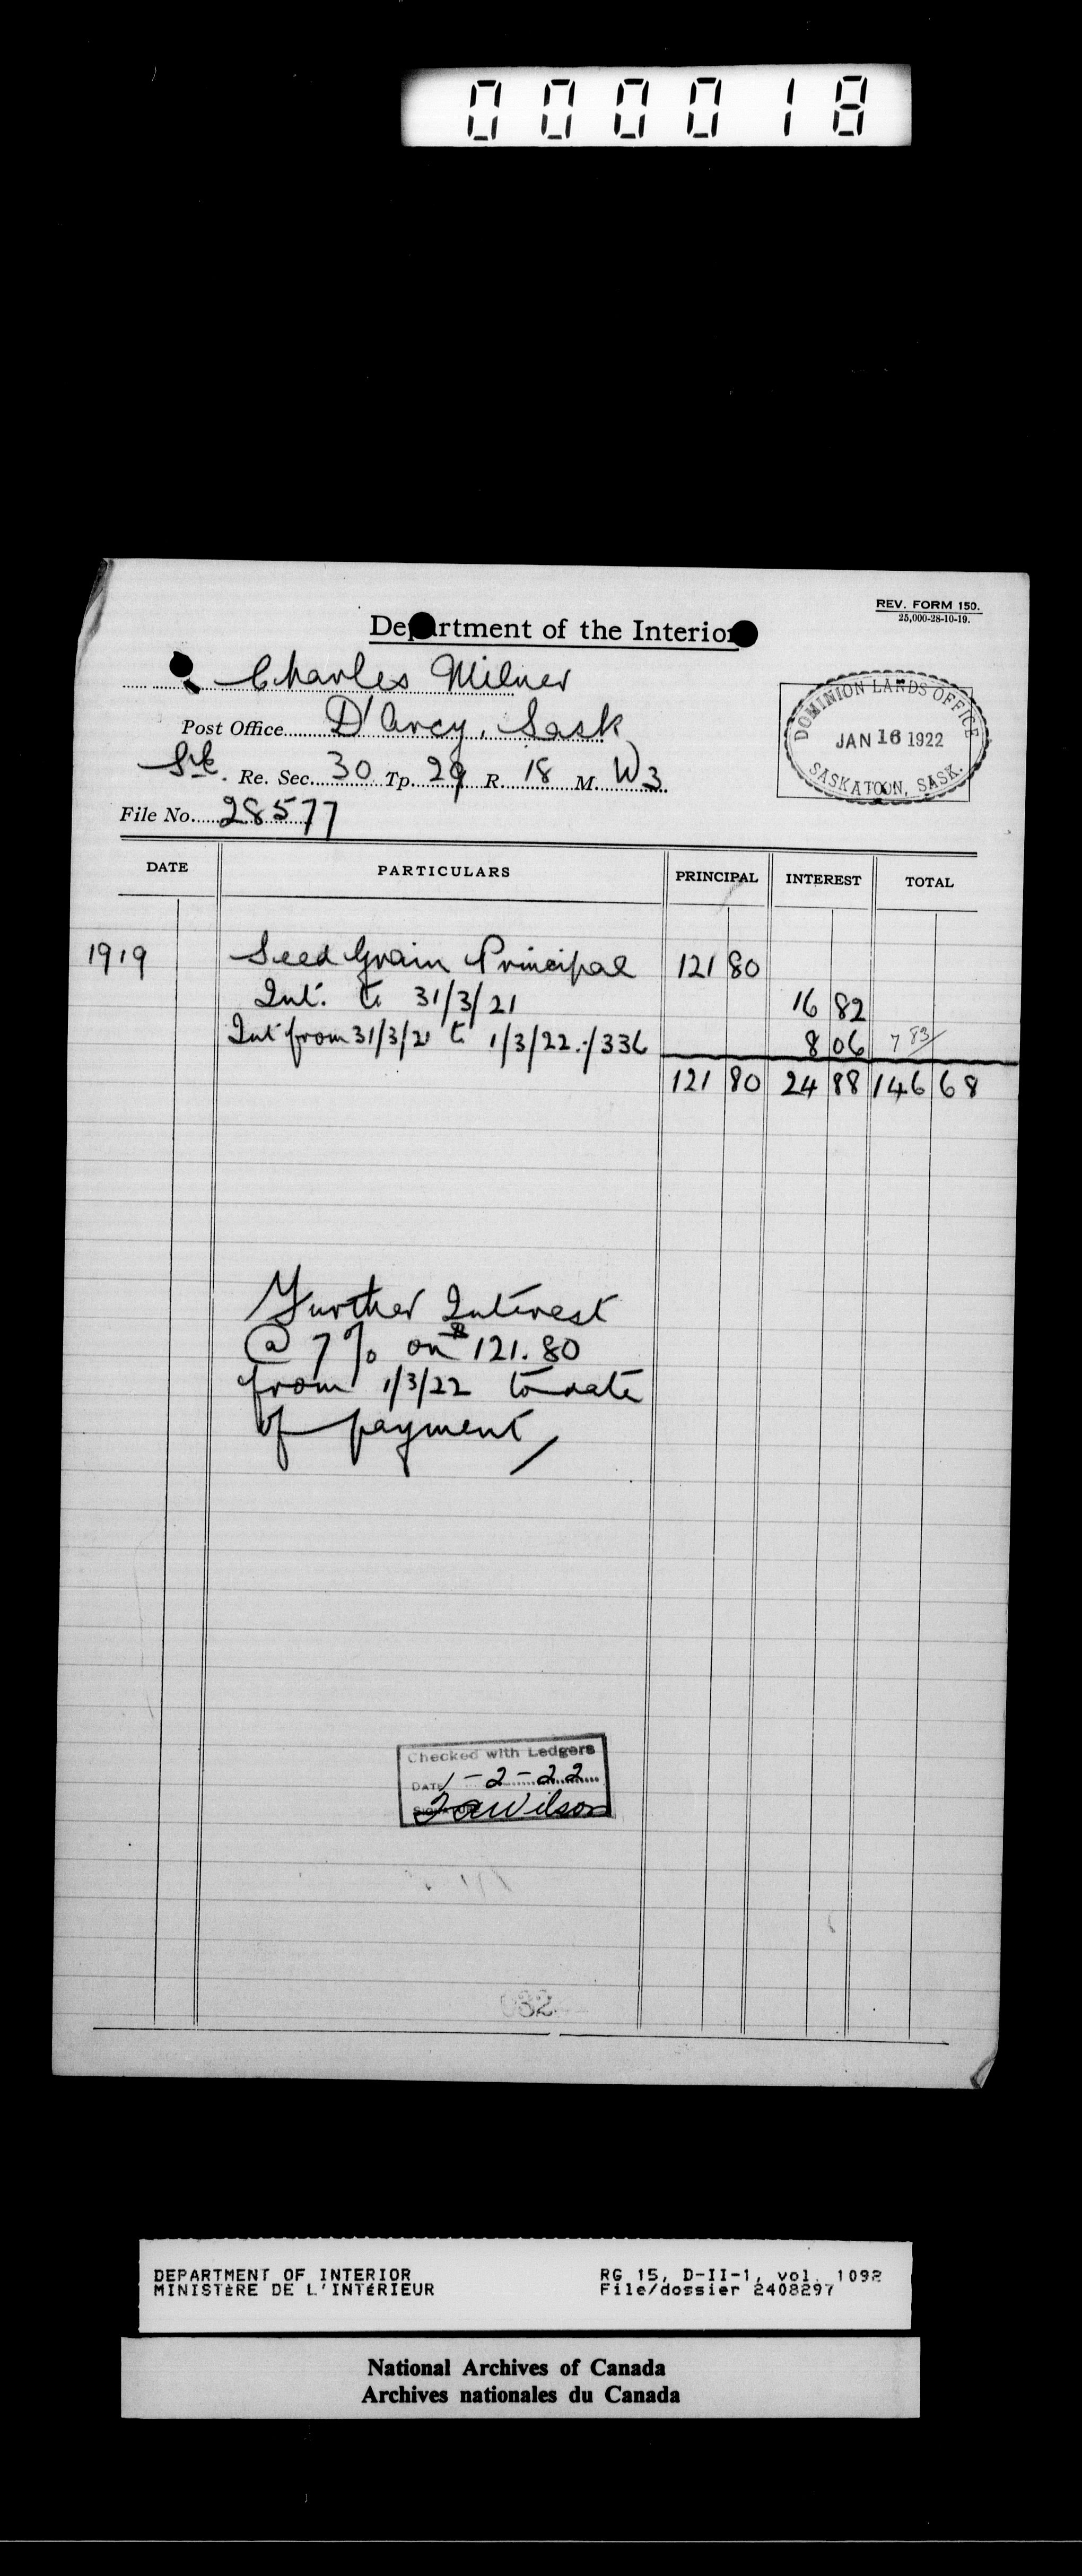 000018
REV. FORM 150.
25,000-28-10-19.
Department of the Interior
Charles Milner
Post Office D'Arcy, Sask
Re. Sec. 30 Tp. 29 R. 18 M. W3
File No. 28577
DOMINION LANDS OFFICE
JAN 16 1922
SASKATOON, SASK.
DATE PARTICULARS PRINCIPAL INTEREST TOTAL
1919 Seed Grain Principal 121 80
Int. to 31/3/21 16 82
Int from 31/3/21 to 1/3/22 336 8 06 7 83
121 80 24 88 146 68
Further Interest
@ 7% on $121.80
from 1/3/22 to date
of payment
Checked with Ledgers
DATE 1-2-22
SIGNATURE Wilson
DEPARTMENT OF INTERIOR RG 15, D-II-1, vol. 1092
MINISTÈRE DE L'INTÉRIEUR File/dossier 2408297
National Archives of Canada
Archives nationales du Canada